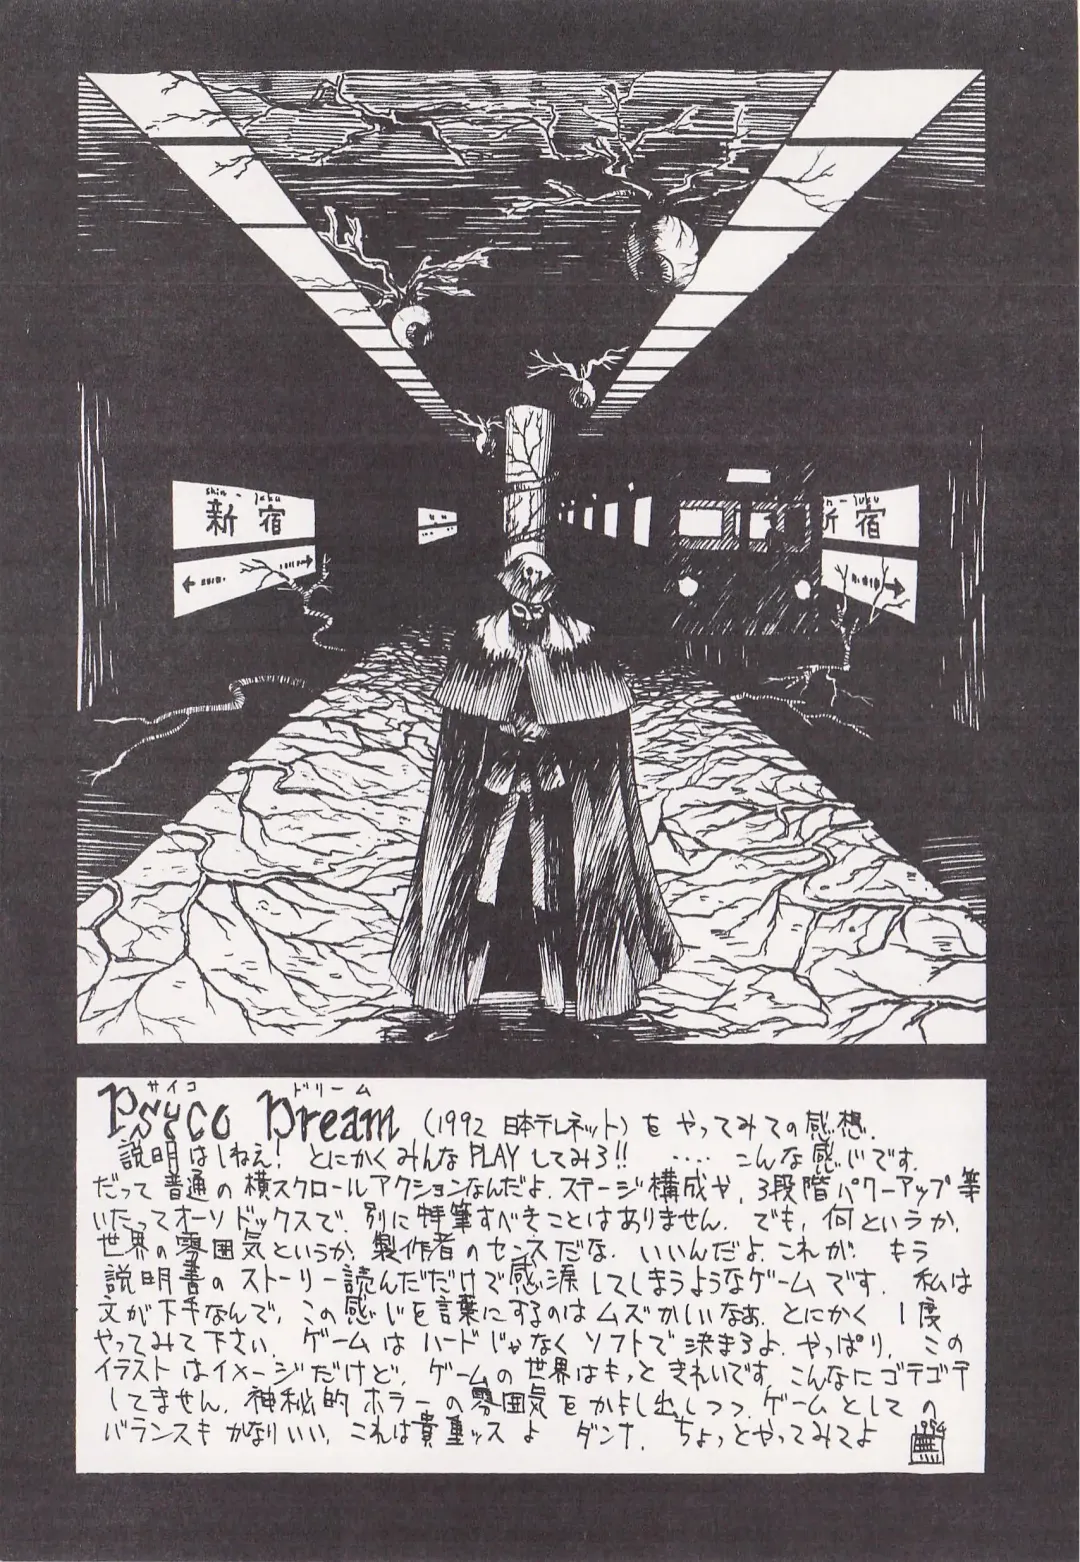 shin - juku
新宿
n - juku
新宿
サイコ ドリーム
Psyco Dream (1992 日本テレネット) を やってみての感想.
説明はいねえ! とにかくみんなPLAYしてみろ!! .... こんな感じです.
だって普通の横スクロールアクションなんだよ. ステージ構成や, 3段階パワーアップ等
いたってオーソドックスで, 別に特筆すべきことはありません. でも, 何というか,
世界の雰囲気というか, 製作者のセンスだな. いいんだよ. これが. もう
説明書のストーリー読んだだけで感涙してしまうようなゲームです. 私は
文が下手なんで, この感じを言葉にするのはムズかしいなぁ. とにかく 1度
やってみて下さい. ゲームはハードじゃなくソフトで決まるよ. やっぱり. この
イラストはイメージだけど, ゲームの世界はもっときれいです. こんなにゴテゴテ
してません. 神秘的ホラーの雰囲気をかもし出しつつ, ゲームとしての
バランスもかなりいい, これは貴重ッスよ ダンナ. ちょっとやってみてよ
1994
無